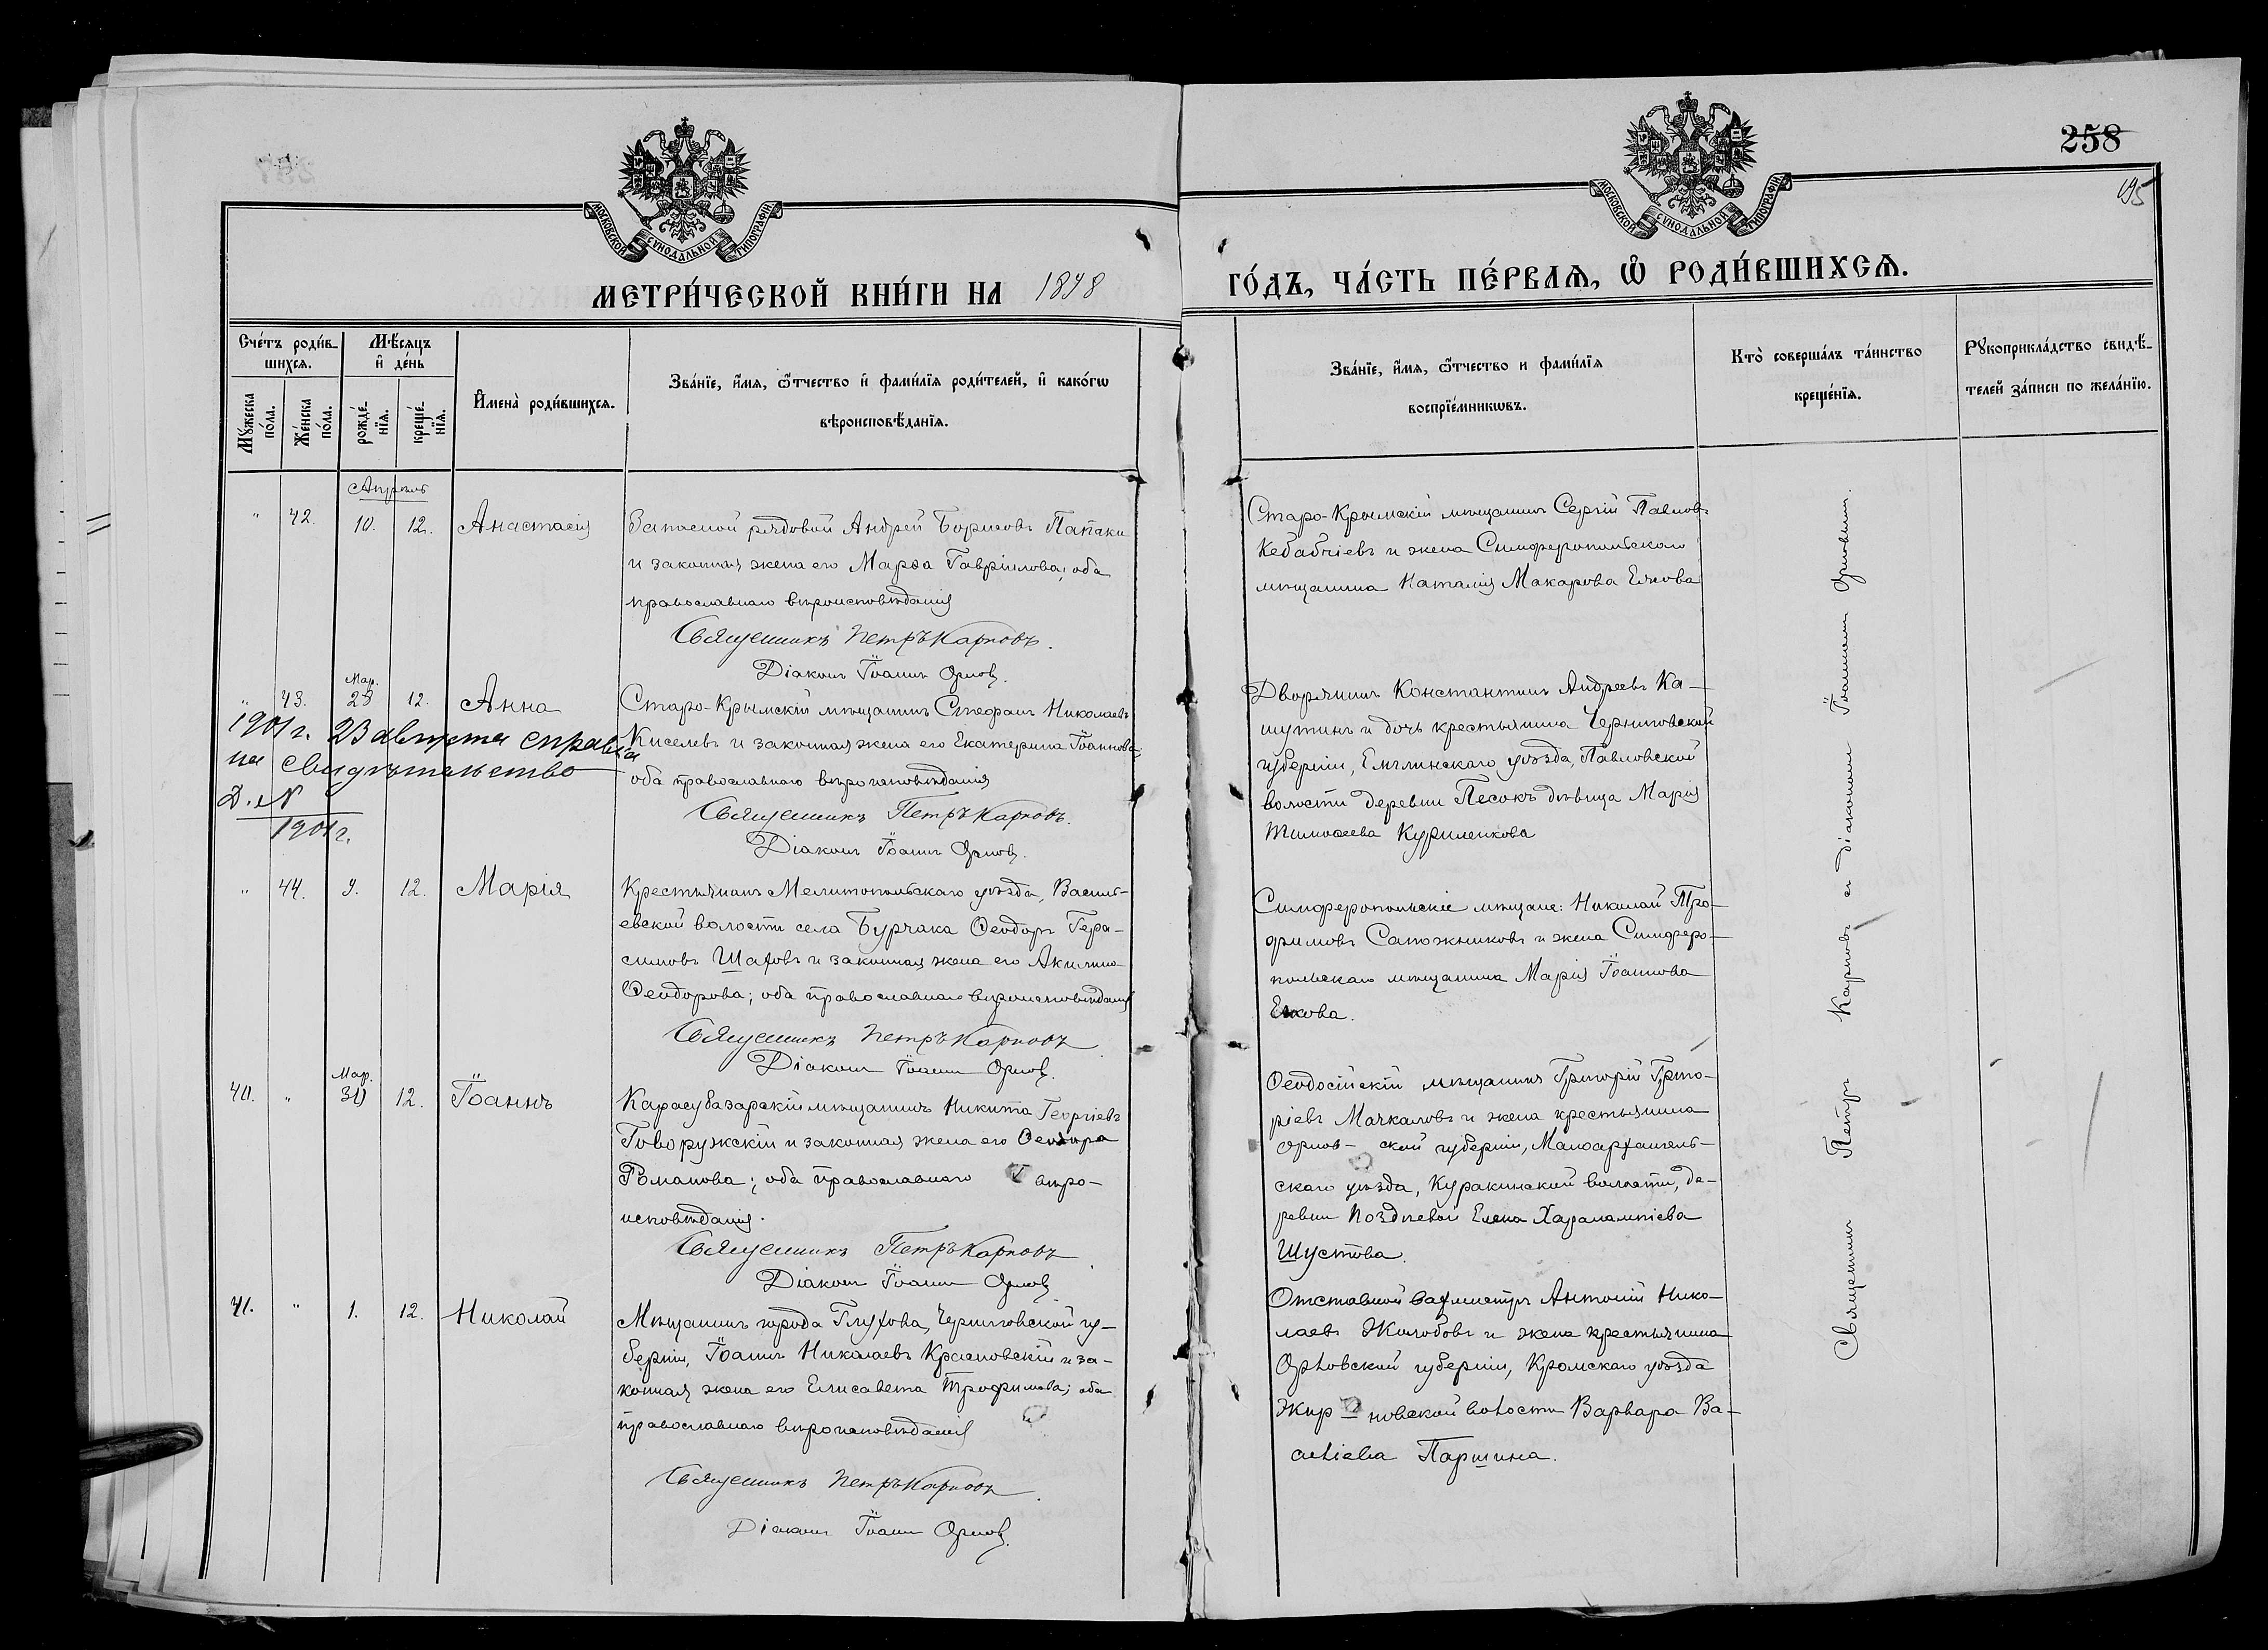 МОСКОВСКОЙ СѴНОДАЛЬНОЙ ТИПОГРАФІИ
МЕТРИ́ЧЕСКОЙ КНИ́ГИ НА 1898
Сче́тъ роди́в-
шихся.
Мѣ́сяцъ
и҆ де́нь
Мꙋ́жеска
по́ла.
Же́нска
по́ла.
рожде́-
нїя.
креще́-
нїя.
И҆мена̀ роди́вшихся.
Зва́нїе, и҆́мя, ѻ҆́тчество и҆ фами́лїя роди́телей, и҆ како́гѡ
вѣроисповѣ́данїя.
Апрѣль
" 42. 10. 12. Анастасія
Запасной рядовой Андрей Борисовъ Папаки
и законная жена его Марѳа Гавріилова; оба
православнаго вѣроисповѣданія
Священникъ Петръ Карповъ.
Діаконъ Іоаннъ Орловъ.
" 43. Мар. 23 12. Анна
Старо-Крымскій мѣщанинъ Стефанъ Николаевъ
Киселевъ и законная жена его Екатерина Іоаннова;
оба православнаго вѣроисповѣданія
Священникъ Петръ Карповъ.
Діаконъ Іоаннъ Орловъ.
1901 г. 23 августа справка
на свидѣтельство
Д. №
1901 г.
" 44. 9. 12. Марія
Крестьянинъ Мелитопольскаго уѣзда, Василь-
евской волости села Бурчака Ѳеодоръ Гера-
симовъ Шаховъ и законная жена его Акилина
Ѳеодорова; оба православнаго вѣроисповѣданія
Священникъ Петръ Карповъ
Діаконъ Іоаннъ Орловъ.
40. " Мар. 30 12. Іоаннъ
Карасубазарскій мѣщанинъ Никита Георгіевъ
Говоружскій и законная жена его Ѳеодора
Романова; оба православнаго вѣро-
исповѣданія.
Священникъ Петръ Карповъ
Діаконъ Іоаннъ Орловъ
41. " 1. 12. Николай
Мѣщанинъ города Глухова, Черниговской гу-
берніи, Іоаннъ Николаевъ Красновскій и за-
конная жена его Елисавета Трофимова; оба
православнаго вѣроисповѣданія
Священникъ Петръ Карповъ.
Діаконъ Іоаннъ Орловъ.
258
195
МОСКОВСКОЙ СѴНОДАЛЬНОЙ ТИПОГРАФІИ
ГО́ДЪ, ЧА́СТЬ ПЕ́РВАѦ, Ѽ РОДИ́ВШИХСѦ.
Зва́нїе, и҆́мя, ѻ҆́тчество и фами́лїя
воспрїе́мникѡвъ.
Кто̀ соверша́лъ та́инство
креще́нїя.
Рꙋкоприкла́дство свидѣ́-
телей за́писи по жела́нїю.
Старо-Крымскій мѣщанинъ Сергій Павловъ
Кебабчіевъ и жена Симферопольскаго
мѣщанина Наталія Макарова Ежова
Дворянинъ Константинъ Андреевъ Ка-
шутинъ и дочь крестьянина Черниговской
губерніи, уѣзда, Павловской
волости деревни Песокъ дѣвица Марія
Тимоѳеева Куриленкова
Симферопольскіе мѣщане: Николай Тро-
фимовъ Сапожниковъ и жена Симферо-
польскаго мѣщанина Марія Іоаннова
Ежова.
Ѳеодосійскій мѣщанинъ Григорій Григо-
ріевъ Мачкаловъ и жена крестьянина
Орлов- ской губерніи, Малоархангель-
скаго уѣзда, Куракинской волости, де-
ревни Поздневой Елена Харалампіева
Шустова.
Отставной вахмистръ Антоній Нико-
лаевъ Жолобовъ и жена крестьянина
Орловской губерніи, Кромскаго уѣзда
Жир- новской волости Варвара Ва-
силіева Паршина.
Священникъ Петръ Карповъ съ діакономъ Іоанномъ Орловымъ.